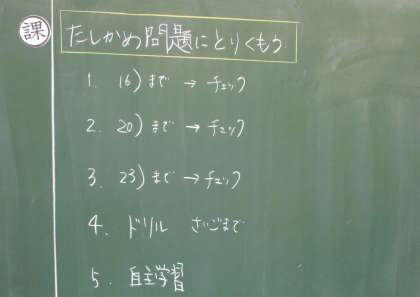 課 たしかめ問題にとりくもう
1. 16)まで → チェック
2. 20)まで → チェック
3. 23)まで → チェック
4. ドリル さいごまで
5. 自主学習